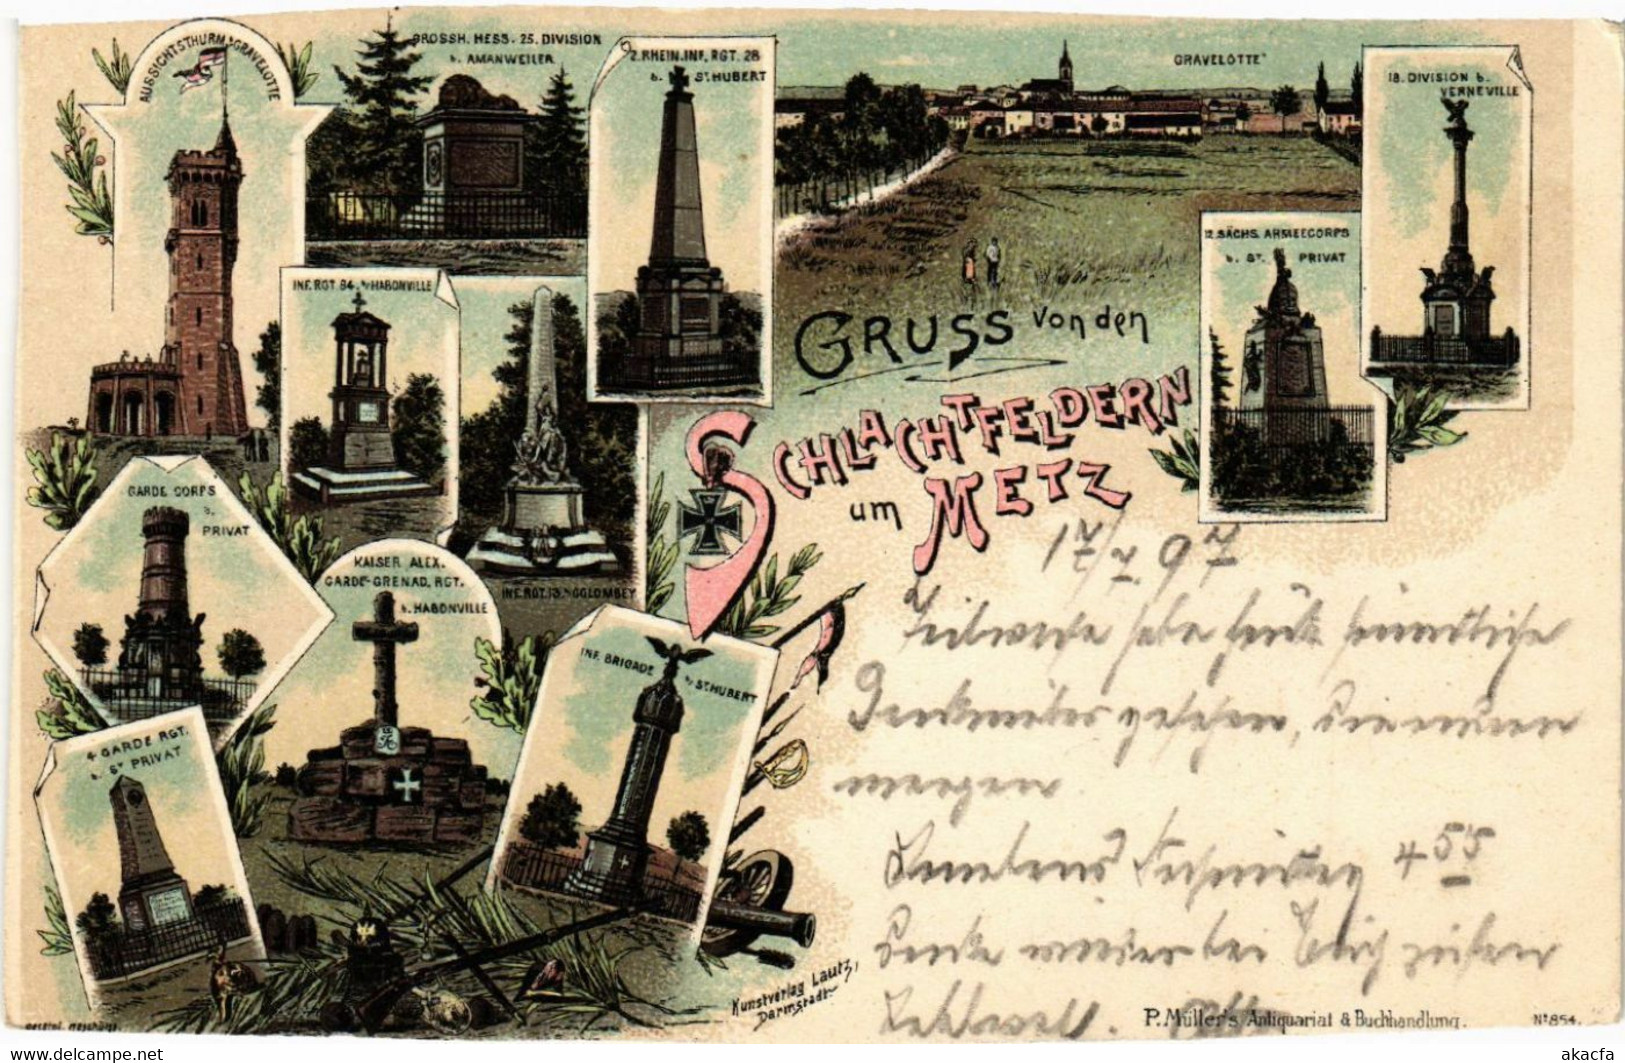 AUSSICHTSTHURM b/GRAVELOTTE
GROSSH. HESS. 25. DIVISION
b. AMANWEILER
2. RHEIN. INF. RGT. 28
b. ST HUBERT
GRAVELOTTE
18. DIVISION b.
VERNEVILLE
12. SÄCHS. ARMEECORPS
b. ST. PRIVAT
INF. RGT. 84. b/HABONVILLE
GRUSS von den
SCHLACHTFELDERN
um METZ
GARDE CORPS
b.
PRIVAT
KAISER ALEX.
GARDE-GRENAD. RGT.
b. HABONVILLE
INF. RGT. 13. b/COLOMBEY
INF. BRIGADE
b/ ST. HUBERT
4 GARDE RGT.
b. ST PRIVAT
17/7.97
Teilweise habe heute sämmtliche
Denkmäler gesehen,
morgen
Abends 4 55
Denke wieder bei Euch
Kunstverlag Lautz,
Darmstadt.
P. Müller's Antiquariat & Buchhandlung.
No 854.
delcampe.net
akacfa